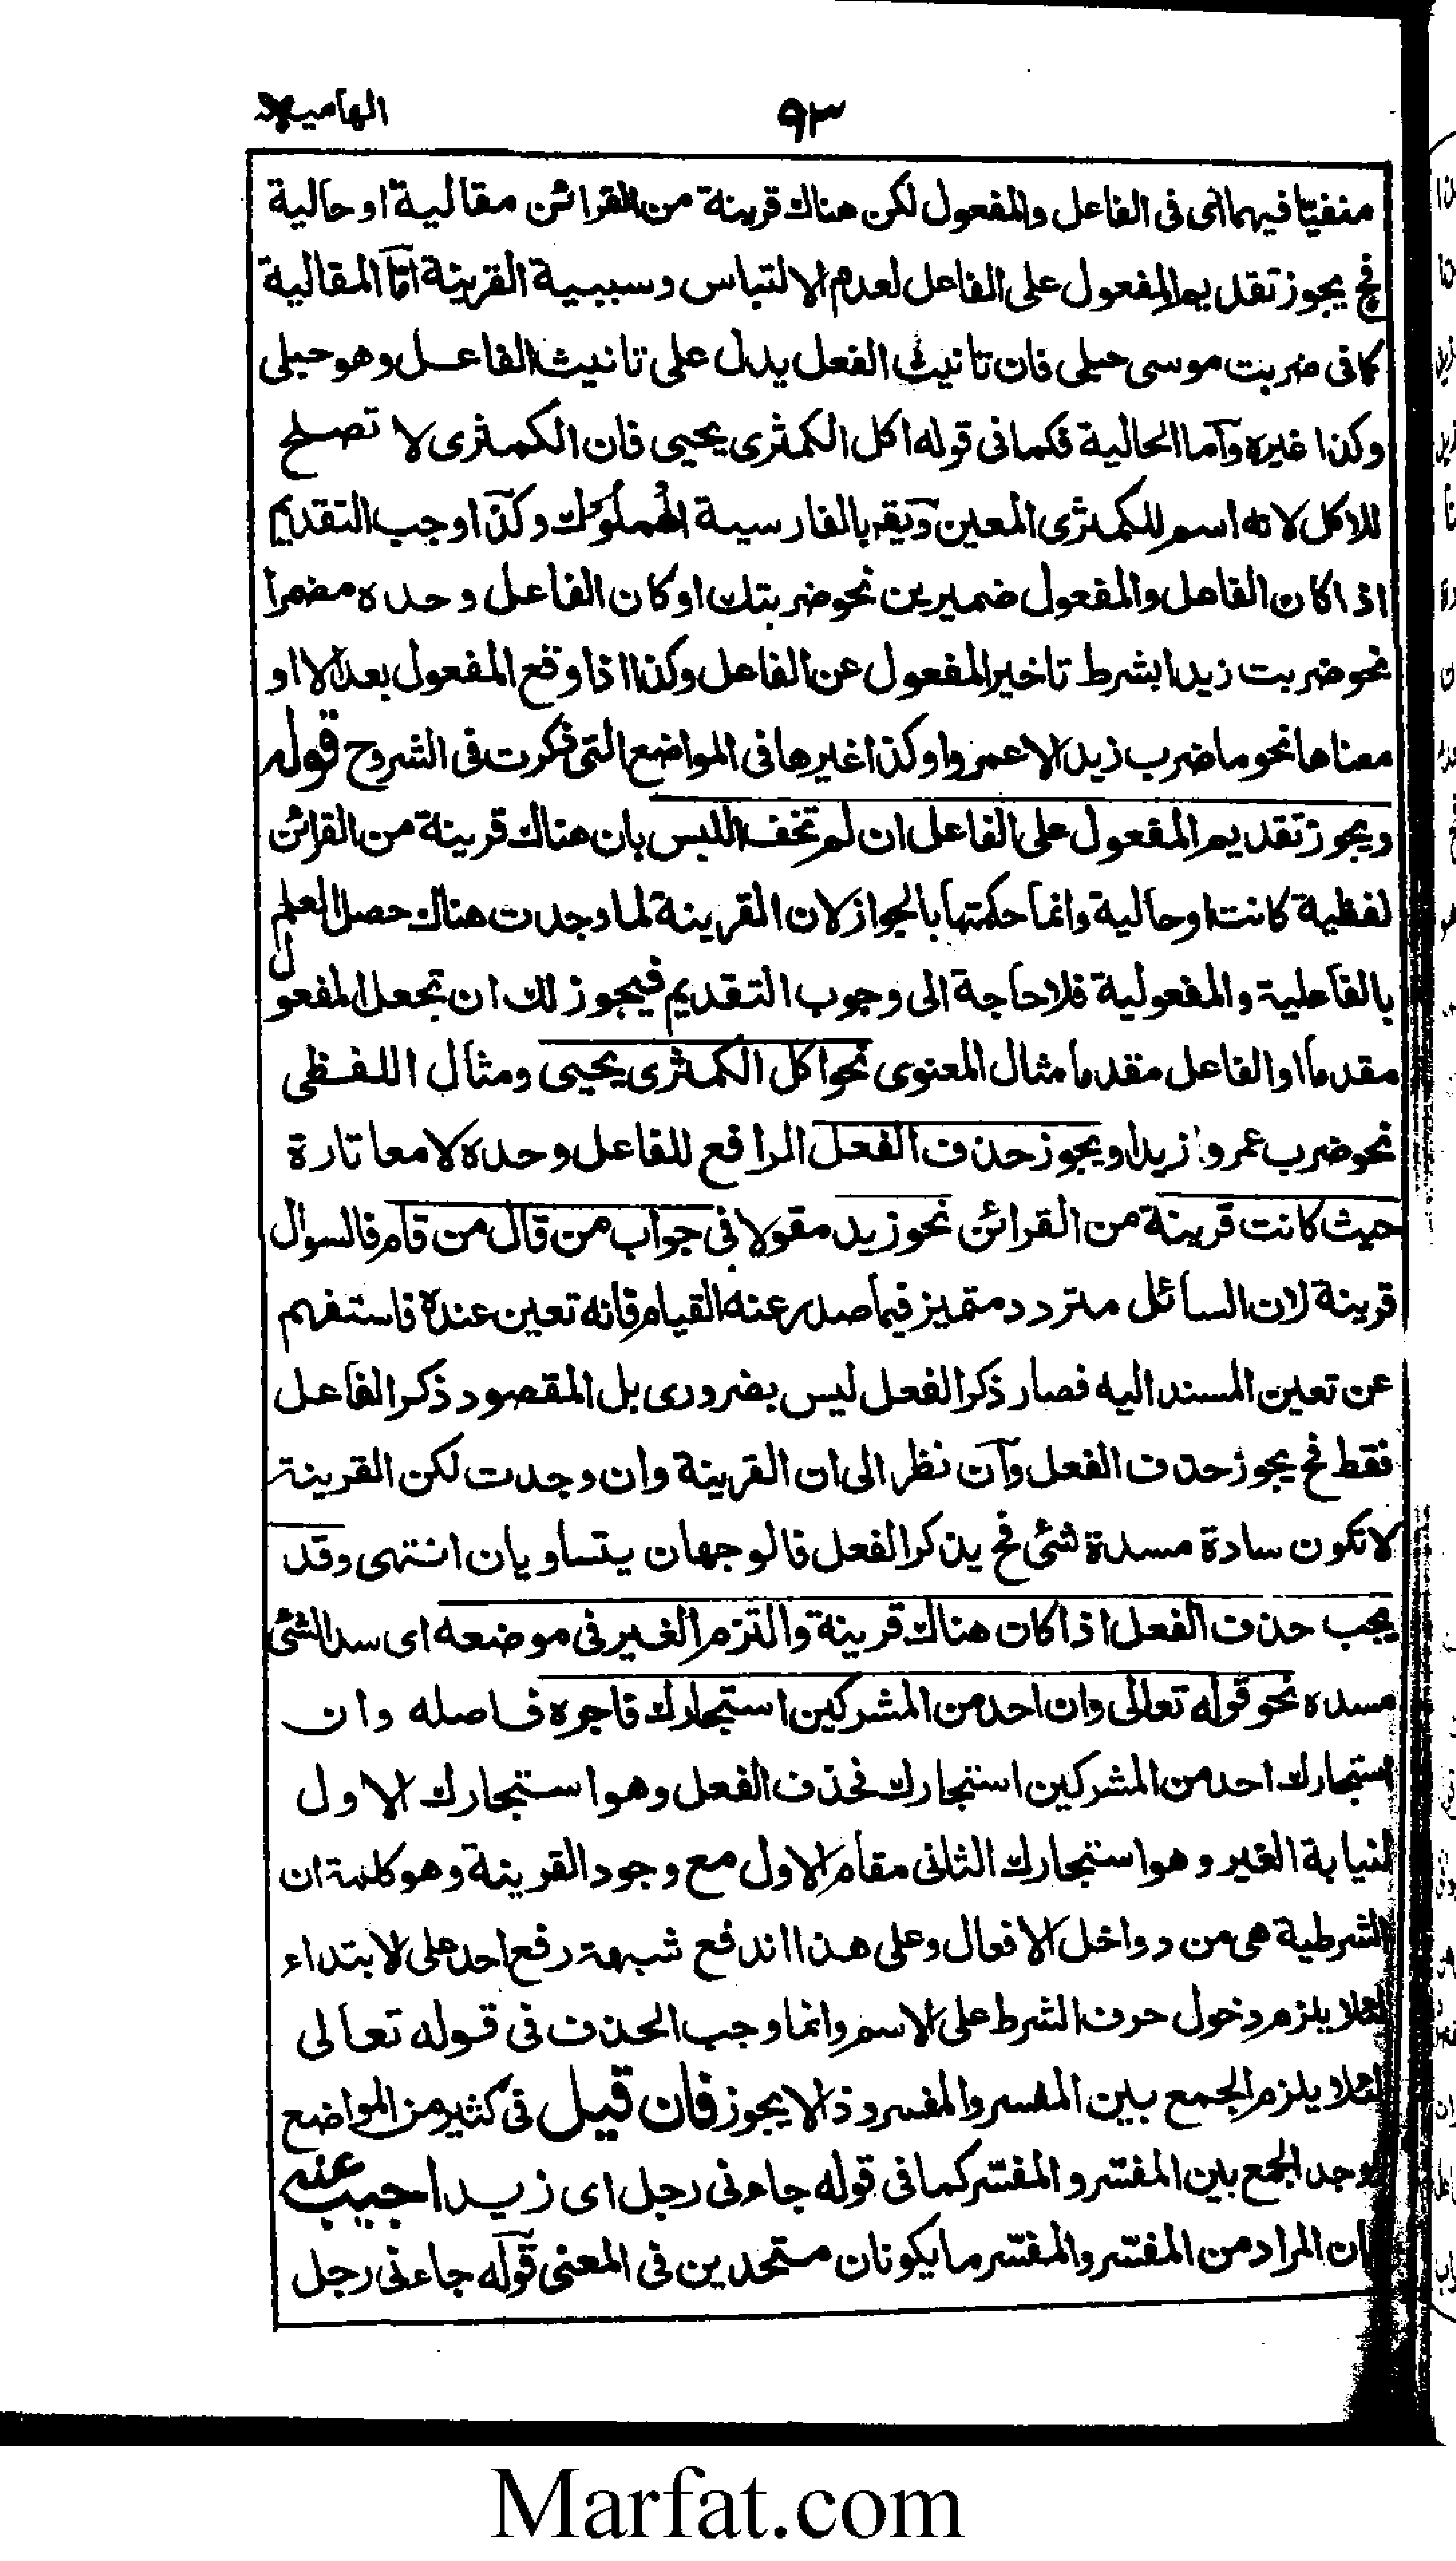 الهاميه
٩٣
منفيّا فيهما اى فى الفاعل والمفعول لكن هناك قرينة من القرائن مقالية او حالية
فح يجوز تقديم المفعول على الفاعل لعدم الالتباس وسببية القرينة امّا المقالية
كما فى ضربت موسى حبلى فان تانيث الفعل يدل على تانيث الفاعل وهو حبلى
وكذا غيره وآما الحالية فكما فى قوله اكل الكمثرى يحيى فان الكمثرى لا تصلح
للاكل لانه اسم للكمثرى المعين ويقہ بالفارسية وكذا وجب التقديم
اذا كان الفاعل والمفعول ضميرين نحو ضربتك او كان الفاعل وحده مضمرا
نحو ضربت زيدا بشرط تاخير المفعول عن الفاعل وكذا اذا وقع المفعول بعد الا او
معناها نحو ما ضرب زيد الا عمروا وكذا غيرها فى المواضع التى ذكرت فى الشروح قوله
ويجوز تقديم المفعول على الفاعل ان لم تخف اللبس بان هناك قرينة من القرائن
لفظية كانت او حالية وانما حكمتها بالجواز لان القرينة لما وجدت هناك حصل العلم
بالفاعلية والمفعولية فلا حاجة الى وجوب التقديم فيجوز لك ان تجعل المفعول
مقدما او الفاعل مقدما مثال المعنوى نحو اكل الكمثرى يحيى ومثال اللفظى
نحو ضرب عمرو زيدا ويجوز حذف الفعل الرافع للفاعل وحده لا معا تارة
حيث كانت قرينة من القرائن نحو زيد مقولا فى جواب من قال من قام فالسوال
قرينة لان السائل متردد متميز فيما صدر عنه القيام فانه تعين عنده فاستفهم
عن تعين المسند اليه فصار ذكر الفعل ليس بضرورى بل المقصود ذكر الفاعل
فقط فح يجوز حذف الفعل وآن نظر الى ان القرينة وان وجدت لكن القرينة
لا تكون سادة مسدة شئى فح يذكر الفعل فالوجهان يتساويان انتهى وقد
يجب حذف الفعل اذا كان هناك قرينة والتزم الغير فى موضعه اى سد الشئى
مسده نحو قوله تعالى وان احد من المشركين استجارك فاجره فاصله وان
استجارك احد من المشركين استجارك فحذف الفعل وهو استجارك الاول
لنيابة الغير وهو استجارك الثانى مقام الاول مع وجود القرينة وهو كلمة ان
الشرطية هى من دواخل الافعال وعلى هذا اندفع شبهة رفع احد على الابتداء
لئلا يلزم دخول حرف الشرط على الاسم وانما وجب الحذف فى قوله تعالى
لئلا يلزم الجمع بين المفسر والمفسر وذا لا يجوز فان قيل فى كثير من المواضع
وجد الجمع بين المفسّر والمفسّر كما فى قوله جاءنى رجل اى زيد اجيب عنه
بان المراد من المفسّر والمفسّر ما يكونان متحدين فى المعنى قوله جاءنى رجل
Marfat.com